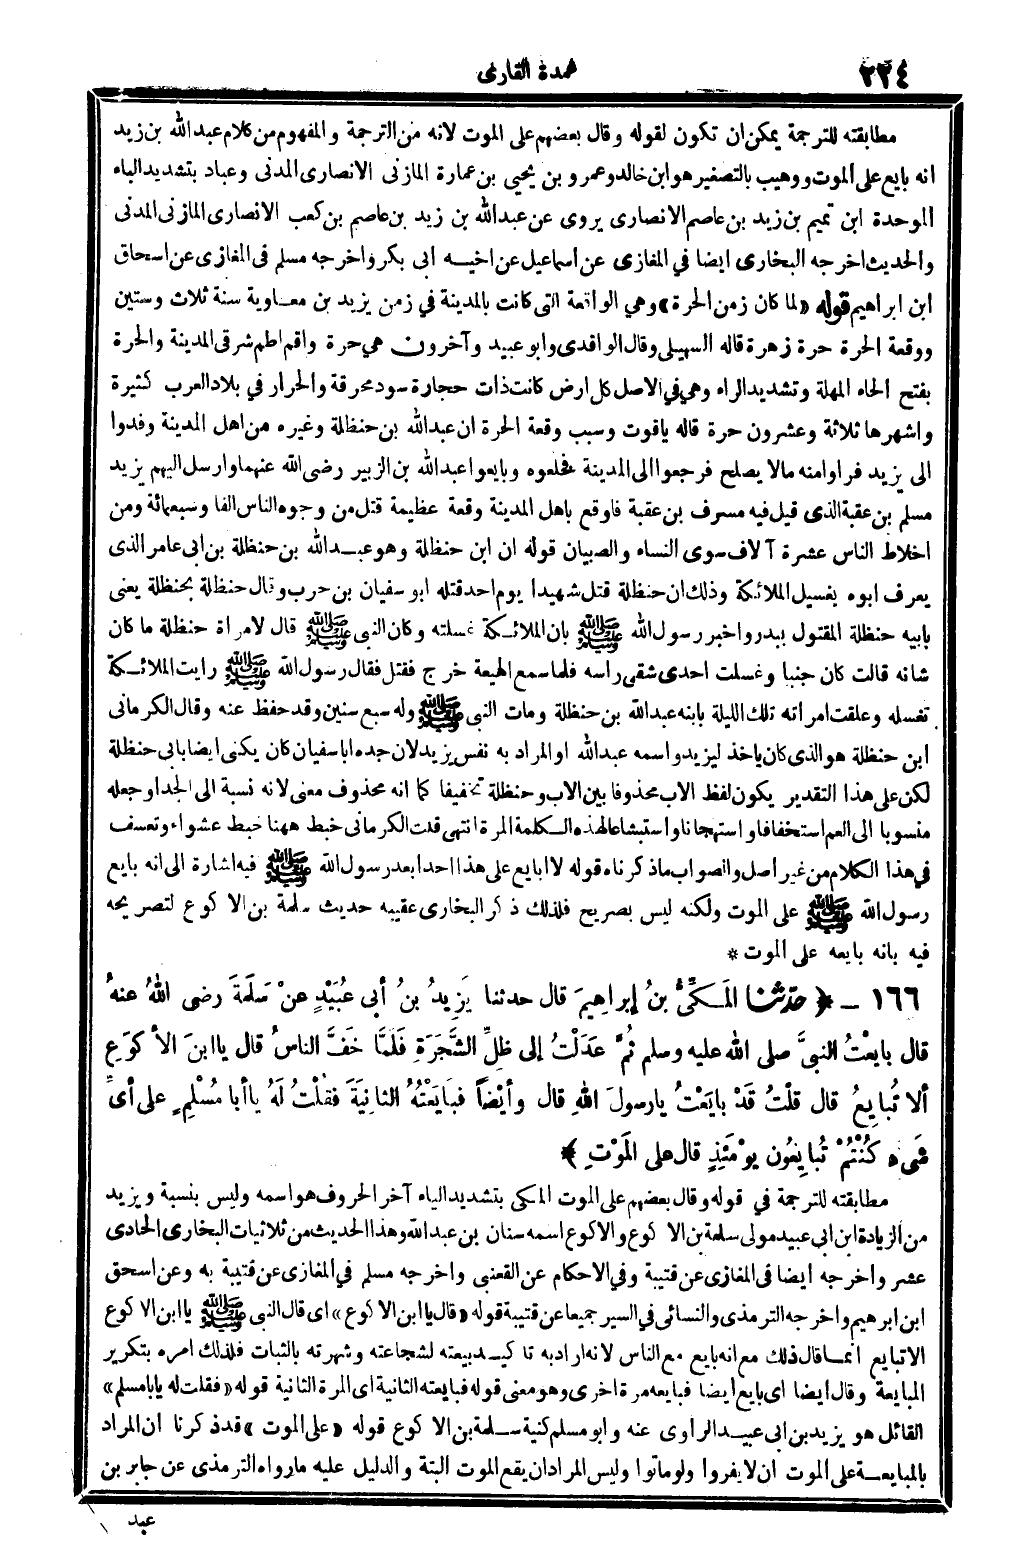 ٢٢٤
عمدة القارى
مطابقته للترجمة يمكن ان تكون لقوله وقال بعضهم على الموت لانه من الترجمة والمفهوم من كلام عبد الله بن زيد
انه بايع على الموت ووهيب بالتصغير هو ابن خالد وعمرو بن يحيى بن عمارة المازنى الانصارى المدنى وعباد بتشديد الباء
الموحدة ابن تميم بن زيد بن عاصم الانصارى يروى عن عبد الله بن زيد بن عاصم بن كعب الانصارى المازنى المدنى
والحديث اخرجه البخارى ايضا في المغازى عن أسماعيل عن اخيه ابى بكر واخرجه مسلم فى المغازى عن اسحاق
ابن ابراهيم قوله «لما كان زمن الحرة» وهي الواقعة التى كانت بالمدينة في زمن يزيد بن معاوية سنة ثلاث وستين
ووقعة الحرة حرة زهرة قاله السهيلى وقال الواقدى وابو عبيد وآخرون هي حرة واقم اطم شرقى المدينة والحرة
بفتح الحاء المهملة وتشديد الراء وهي في الاصل كل ارض كانت ذات حجارة سود محرقة والحرار في بلاد العرب كثيرة
واشهرها ثلاثة وعشرون حرة قاله ياقوت وسبب وقعة الحرة ان عبد الله بن حنظلة وغيره من اهل المدينة وفدوا
الى يزيد فراوا منه مالا يصلح فرجعوا الى المدينة فخلعوه وبايعوا عبد الله بن الزبير رضى الله عنهما وارسل اليهم يزيد
مسلم بن عقبة الذى قيل فيه مسرف بن عقبة فاوقع باهل المدينة وقعة عظيمة قتل من وجوه الناس الفا وسبعمائة ومن
اخلاط الناس عشرة آلاف سوى النساء والصبيان قوله ان ابن حنظلة وهو عبد الله بن حنظلة بن ابى عامر الذى
يعرف ابوه بغسيل الملائكة وذلك ان حنظلة قتل شهيدا يوم احد قتله ابو سفيان بن حرب وقال حنظلة بحنظلة يعنى
بابيه حنظلة المقتول ببدر واخبر رسول الله ﷺ بان الملائكة غسلته وكان النبى ﷺ قال لامراة حنظلة ما كان
شانه قالت كان جنبا وغسلت احدى شقى راسه فلما سمع الهيعة خرج فقتل فقال رسول الله ﷺ رايت الملائكة
تغسله وعلقت امرأته تلك الليلة بابنه عبد الله بن حنظلة ومات النبى ﷺ وله سبع سنين وقد حفظ عنه وقال الكرمانى
ابن حنظلة هو الذى كان ياخذ ليزيد واسمه عبد الله او المراد به نفس يزيد لان جده ابا سفيان كان يكنى ايضا بابى حنظلة
لكن على هذا التقدير يكون لفظ الاب محذوفا بين الاب وحنظلة تخفيفا كما انه محذوف معنى لانه نسبة الى الجد او جعله
منسوبا الى العم استخفافا واستهجانا واستبشاعا لهذه الكلمة المرة انتهى قلت الكرمانى خبط ههنا خبط عشواء وتعسف
في هذا الكلام من غير أصل والصواب ماذكرناه قوله لا أبايع على هذا احدا بعد رسول الله ﷺ فيه اشارة الى انه بايع
رسول الله ﷺ على الموت ولكنه ليس بصريح فلذلك ذكر البخارى عقيبه حديث سلمة بن الاكوع لتصريحه
فيه بانه بايعه على الموت *
١٦٦ ــ ﴿ حدّثنا المَكِّىُّ بنُ إبراهِيمَ قال حدثنا يَزِيدُ بنُ أبى عُبَيْدٍ عنْ سَلَمَةَ رضى اللهُ عنهُ
قال بايَعْتُ النبىَّ صلى الله عليه وسلم ثُمَّ عَدَلْتُ إلى ظِلِّ الشَّجَرَةِ فَلَمَّا خَفَّ الناسُ قال يا ابنَ الأكوَعِ
ألا تُبايِعُ قال قلْتُ قَدْ بايَعْتُ يارسولَ اللهِ قال وأيْضاً فبايَعْتُهُ الثانِيَةَ فقُلْتُ لَهُ يا أبا مُسْلِمٍ على أىِّ
شىء كُنْتُمْ تُبايِعُون يوْمَئِذٍ قال على المَوْتِ ﴾
مطابقته للترجمة في قوله وقال بعضهم على الموت المكى بتشديد الياء آخر الحروف هو اسمه وليس بنسبة ويزيد
من الزيادة ابن ابى عبيد مولى سلمة بن الاكوع والاكوع اسمه سنان بن عبد الله وهذا الحديث من ثلاثيات البخارى الحادى
عشر وأخرجه أيضا فى المغازى عن قتيبة وفي الاحكام عن القعنبى واخرجه مسلم في المغازى عن قتيبة به وعن اسحق
ابن ابرهيم واخرجه الترمذى والنسائى في السير جميعا عن قتيبة قوله «قال يا ابن الاكوع» اى قال النبى ﷺ يا ابن الاكوع
الا تبايع انما قال ذلك مع انه بايع مع الناس لانه اراد به تاكيد بيعته لشجاعته وشهرته بالثبات فلذلك امره بتكرير
المبايعة وقال أيضا اى بايع أيضا فبايعه مرة اخرى وهو معنى قوله فبايعته الثانية اى المرة الثانية قوله «فقلت له يابا مسلم»
القائل هو يزيد بن ابى عبيد الراوى عنه وابو مسلم كنية سلمة بن الاكوع قوله «على الموت» قد ذكرنا ان المراد
بالمبايعة على الموت ان لا يفروا ولو ماتوا وليس المراد ان يقع الموت البتة والدليل عليه مارواه الترمذى عن جابر بن
عبد